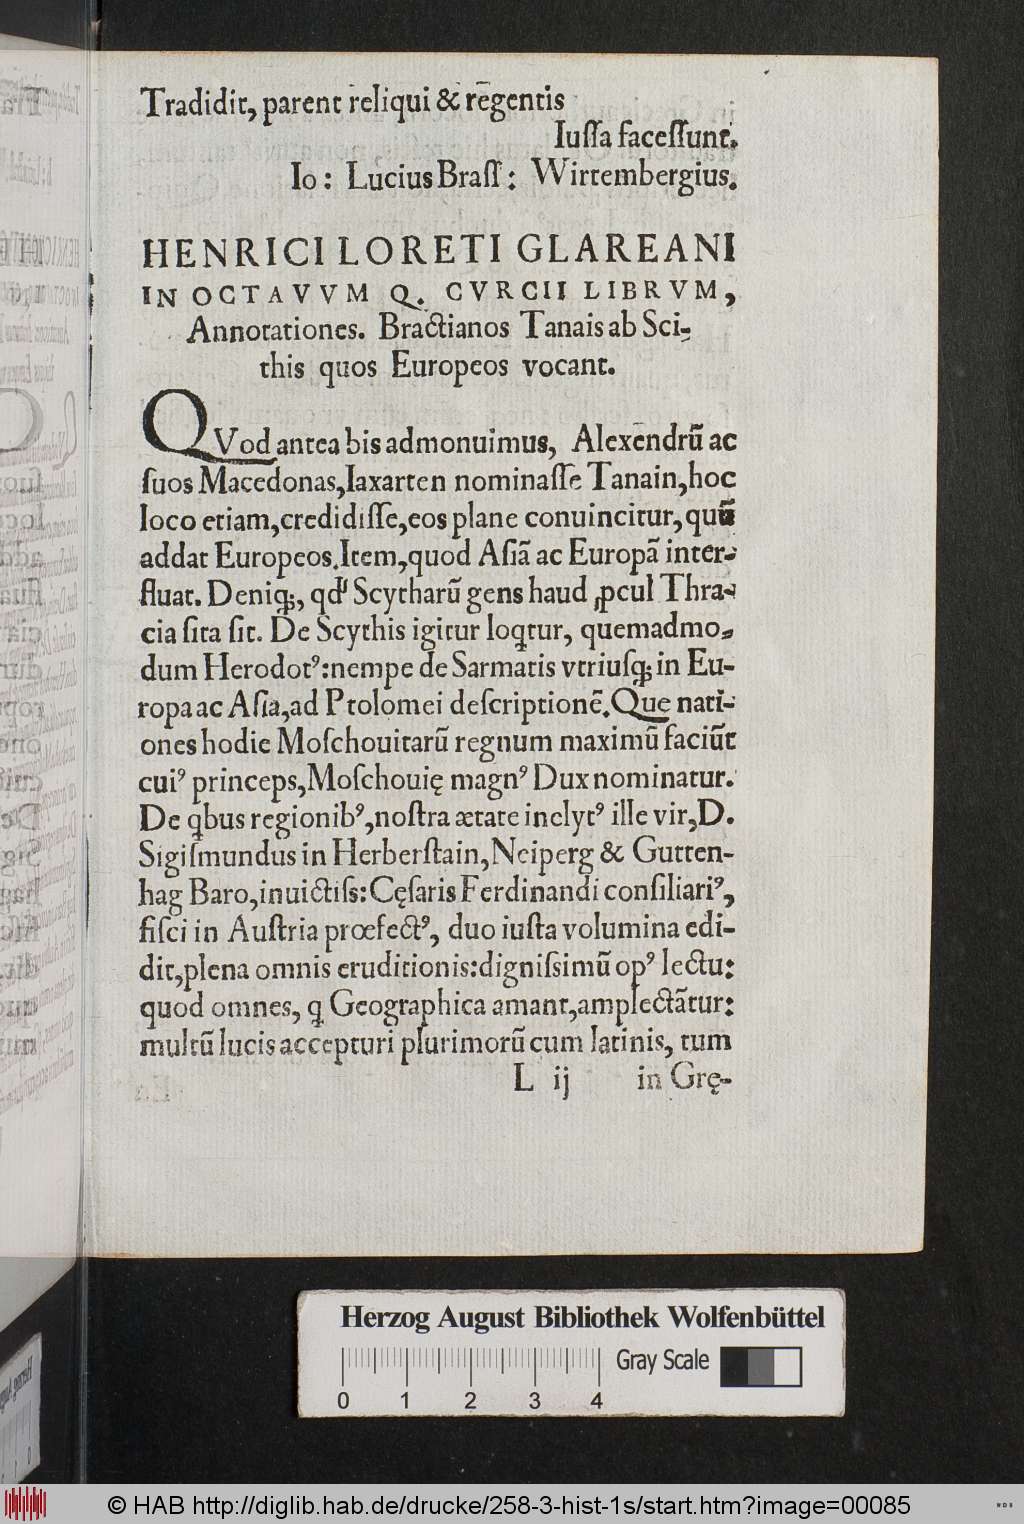 Tradidit, parent reliqui & regentis
Iuſſa faceſſunt.
Io: Lucius Braſſ: Wirtembergius.
HENRICI LORETI GLAREANI
IN OCTAVVM Q. CVRCII LIBRVM,
Annotationes. Bractianos Tanais ab Sci-
this quos Europeos vocant.
QVod antea bis admonuimus, Alexendrũ ac
ſuos Macedonas, Iaxarten nominaſſe Tanain, hoc
loco etiam, credidiſſe, eos plane conuincitur, quũ
addat Europeos. Item, quod Aſiã ac Europã inter-
fluat. Deniqꝫ, qđ Scytharũ gens haud ꝓcul Thra-
cia ſita ſit. De Scythis igitur loq̃tur, quemadmo-
dum Herodotꝰ: nempe de Sarmatis vtriuſqꝫ in Eu-
ropa ac Aſia, ad Ptolomei deſcriptionẽ. Que nati-
ones hodie Moſchouitarũ regnum maximũ faciũt
cuiꝰ princeps, Moſchouię magnꝰ Dux nominatur.
De qbus regionibꝰ, noſtra ætate inclytꝰ ille vir, D.
Sigiſmundus in Herberſtain, Neiperg & Gutten-
hag Baro, inuictiſs: Cęſaris Ferdinandi conſiliariꝰ,
fiſci in Auſtria prœfectꝰ, duo iuſta volumina edi-
dit, plena omnis eruditionis: digniſsimũ opꝰ lectu:
quod omnes, q Geographica amant, amplectãtur:
multũ lucis accepturi plurimorũ cum latinis, tum
L ij in Grę-
Herzog August Bibliothek Wolfenbüttel
Gray Scale
0 1 2 3 4
© HAB http://diglib.hab.de/drucke/258-3-hist-1s/start.htm?image=00085